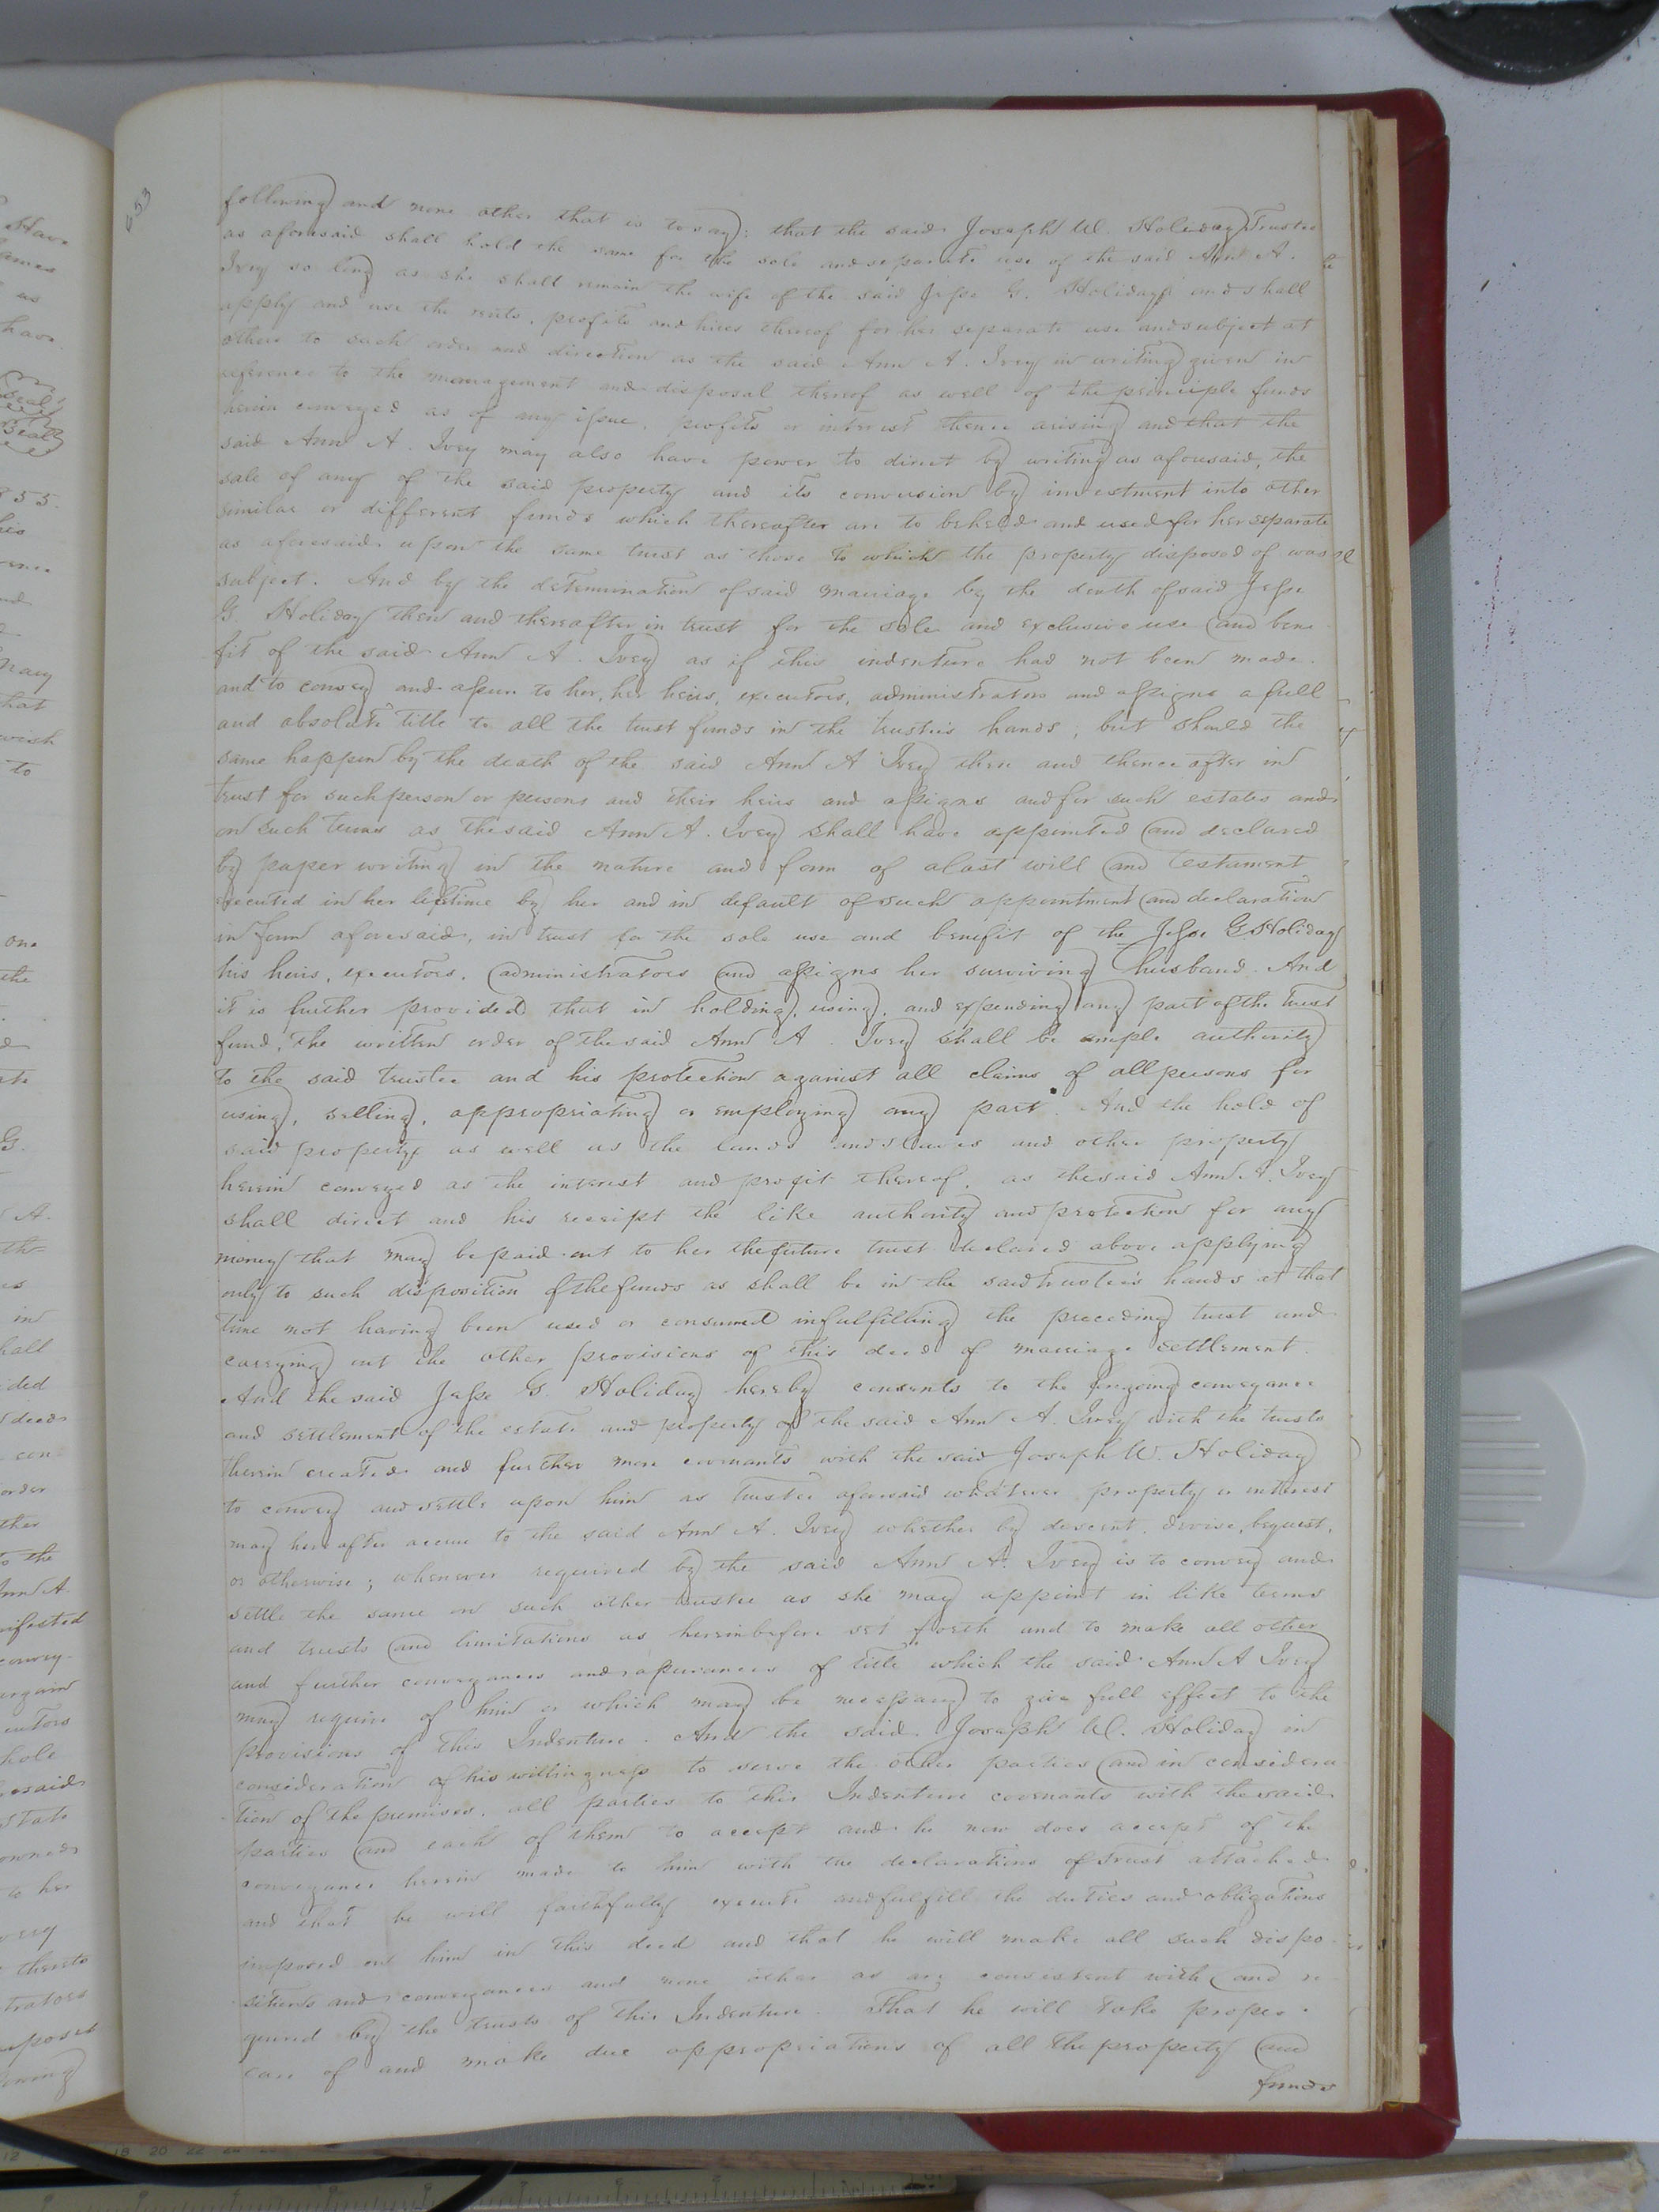 653
following and none other that is to say: that the said Joseph W. Holiday Trustee
as aforesaid shall hold the same for the sole and separate use of the said Ann A.
Ivey so long as she shall remain the wife of the said Jesse G. Holiday and shall
apply and use the rents, profits and hires thereof for her separate use and subject at
others to such order and direction as the said Ann A. Ivey in writing given in
reference to the management and disposal thereof as well of the principle funds
herein conveyed as of any issue, profits or interest thence arising and that the
said Ann A. Ivey may also have power to direct by writing as aforesaid, the
sale of any of the said property and its conversion by investment into other
similar or different funds which thereafter are to beheld and used for her separate
as aforesaid upon the same trust as those to which the property disposed of was
subject. And by the determination of said marriage by the death of said Jesse
G. Holiday then and thereafter in trust for the sole and exclusive use and bene
fit of the said Ann A. Ivey as if this indenture had not been made.
and to convey and assure to her, her heirs, executors, administrators and assigns a full
and absolute title to all the trust funds in the trustees hands, but should the
same happen by the death of the said Ann A Ivey then and thence after in
trust for such person or persons and their heirs and assigns and for such estates and
on such terms as the said Ann A. Ivey shall have appointed and declared
by paper writing in the nature and form of a last will and testament
executed in her lifetime by her and in default of such appointment and declaration
in form aforesaid, in trust for the sole use and benefit of the Jesse G Holiday
his heirs, executors, administrators and assigns her surviving husband. And
it is further provided that in holding, using, and expending any part of the trust
fund, the written order of the said Ann A. Ivey shall be ample authority
to the said trustee and his protection against all claims of all persons for
using, selling, appropriating or employing any part. And the hold of
said property as well as the lands and slaves and other property
herein conveyed as the interest and profit thereof, as the said Ann A. Ivey
shall direct and his receipt the like authority and protection for any
money that may be paid out to her the future trust declared above applying
only to such disposition of the funds as shall be in the said trustees hands at that
time not having been used or consumed in fulfilling the preceding trust and
carrying out the other provisions of this deed of marriage settlement.
And the said Jesse G. Holiday hereby consents to the forgoing conveyance
and settlement of the estate and property of the said Ann A. Ivey with the trusts
herein created and further more covenants with the said Joseph W. Holiday
to convey and settle upon him as trustee aforesaid whatever property or interest
may here after accrue to the said Ann A. Ivey whether by descent, devise, bequest,
or otherwise; whenever required by the said Ann A. Ivey is to convey and
settle the same on such other trustee as she may appoint in like terms
and trusts and limitations as hereinbefore set forth and to make all other
and further conveyances and assurances of title which the said Ann A Ivey
may require of him or which may be necessary to give full effect to the
provisions of this Indenture. And the said Joseph W. Holiday in
consideration of his willingness to serve the other parties and in considera
tion of the premises, all parties to this Indenture covenants with the said
parties and each of them to accept and he now does accept of the
conveyance herein made to him with the declarations of trust attached
and that he will faithfully execute and fulfill the duties and obligations
imposed on him in this deed and that he will make all such dispo
sitions and conveyances and none other as are consistent with and re
quired by the trusts of this Indenture. That he will take proper
care of and make due appropriations of all the property and
funds